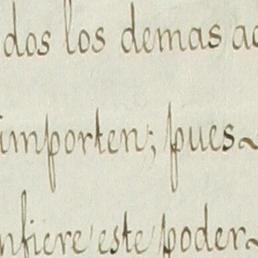 dos los demas ac
importen; pues
nfiere este poder